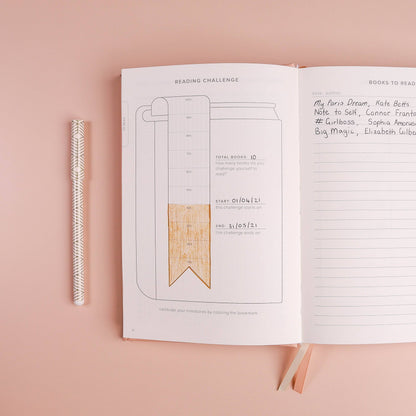 READING CHALLENGE
TOTAL BOOKS: 10
how many books do you
challenge yourself to
read?
START: 01/04/21
this challenge starts on
END: 31/05/21
this challenge ends on
celebrate your milestones by coloring the bookmark
BOOKS TO READ
My Paris Dream, Kate Betts
Note to Self, Connor Franta
# Girlboss, Sophia Amoruso
Big Magic, Elizabeth Gilbe